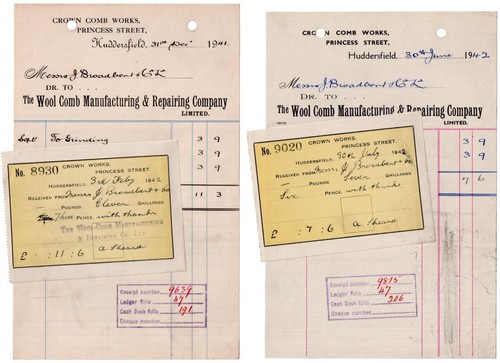 CROWN COMB WORKS,
PRINCESS STREET,
Huddersfield, 31st Dec 1941.
Messrs J. Broadbent & Co Ld
DR. TO . . .
The Wool Comb Manufacturing & Repairing Company
LIMITED.
To Grinding 3 9
3 9
No. 8930
CROWN WORKS,
PRINCESS STREET,
HUDDERSFIELD, 3rd Feby 1942
RECEIVED FROM Messrs J. Broadbent & Co
POUNDS Eleven SHILLINGS
PENCE, with thanks
THE WOOL COMB MANUFACTURING
& REPAIRING CO. LTD.
£ : 11 : 6
11 3
Receipt number 9639
Ledger folio 47
Cash Book folio 191
Cheque number
CROWN COMB WORKS,
PRINCESS STREET,
Huddersfield, 30th June 1942
Messrs J. Broadbent & Co Ld
DR. TO . . .
The Wool Comb Manufacturing & Repairing Company
LIMITED.
3 9
3 9
No. 9020
CROWN WORKS,
PRINCESS STREET,
HUDDERSFIELD, 30th July 1942
RECEIVED FROM Messrs J. Broadbent & Co
POUNDS Seven SHILLINGS
Six PENCE, with thanks
£ : 7 : 6
7 6
Receipt number 9815
Ledger folio 47
Cash Book folio 206
Cheque number